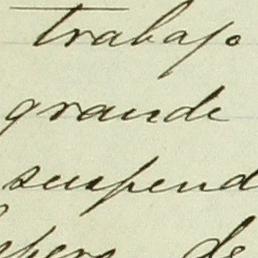 trabajo
grande
suspend
de